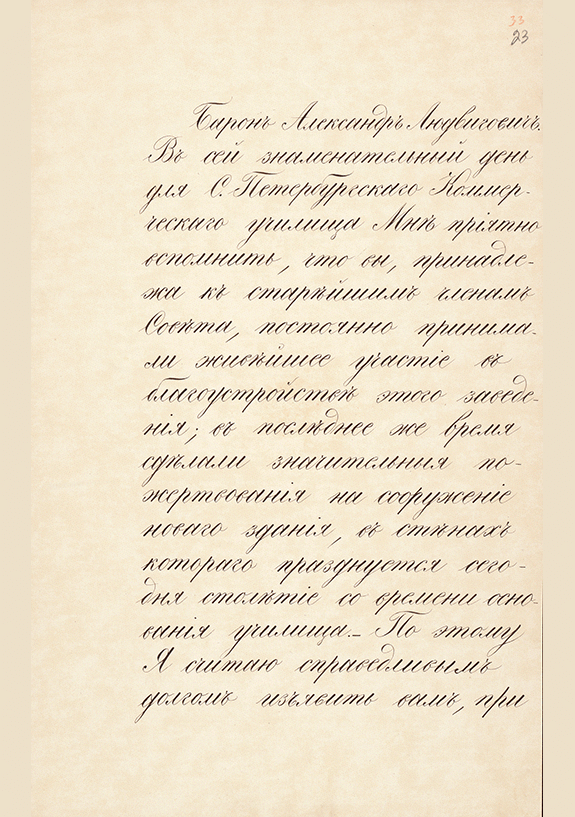 33
23
Баронъ Александръ Людвиговичъ.
Въ сей знаменательный день
для С. Петербургскаго Коммер-
ческаго училища Мнѣ пріятно
вспомнить, что вы, принадле-
жа къ старѣйшимъ членамъ
Совѣта, постоянно принима-
ли живѣйшее участіе въ
благоустройствѣ этого заведе-
нія; въ послѣднее же время
сдѣлали значительныя по-
жертвованія на сооруженіе
новаго зданія, въ стѣнахъ
котораго празднуется сего-
дня столѣтіе со времени осно-
ванія училища.– По этому
Я считаю справедливымъ
долгомъ изъявить вамъ, при